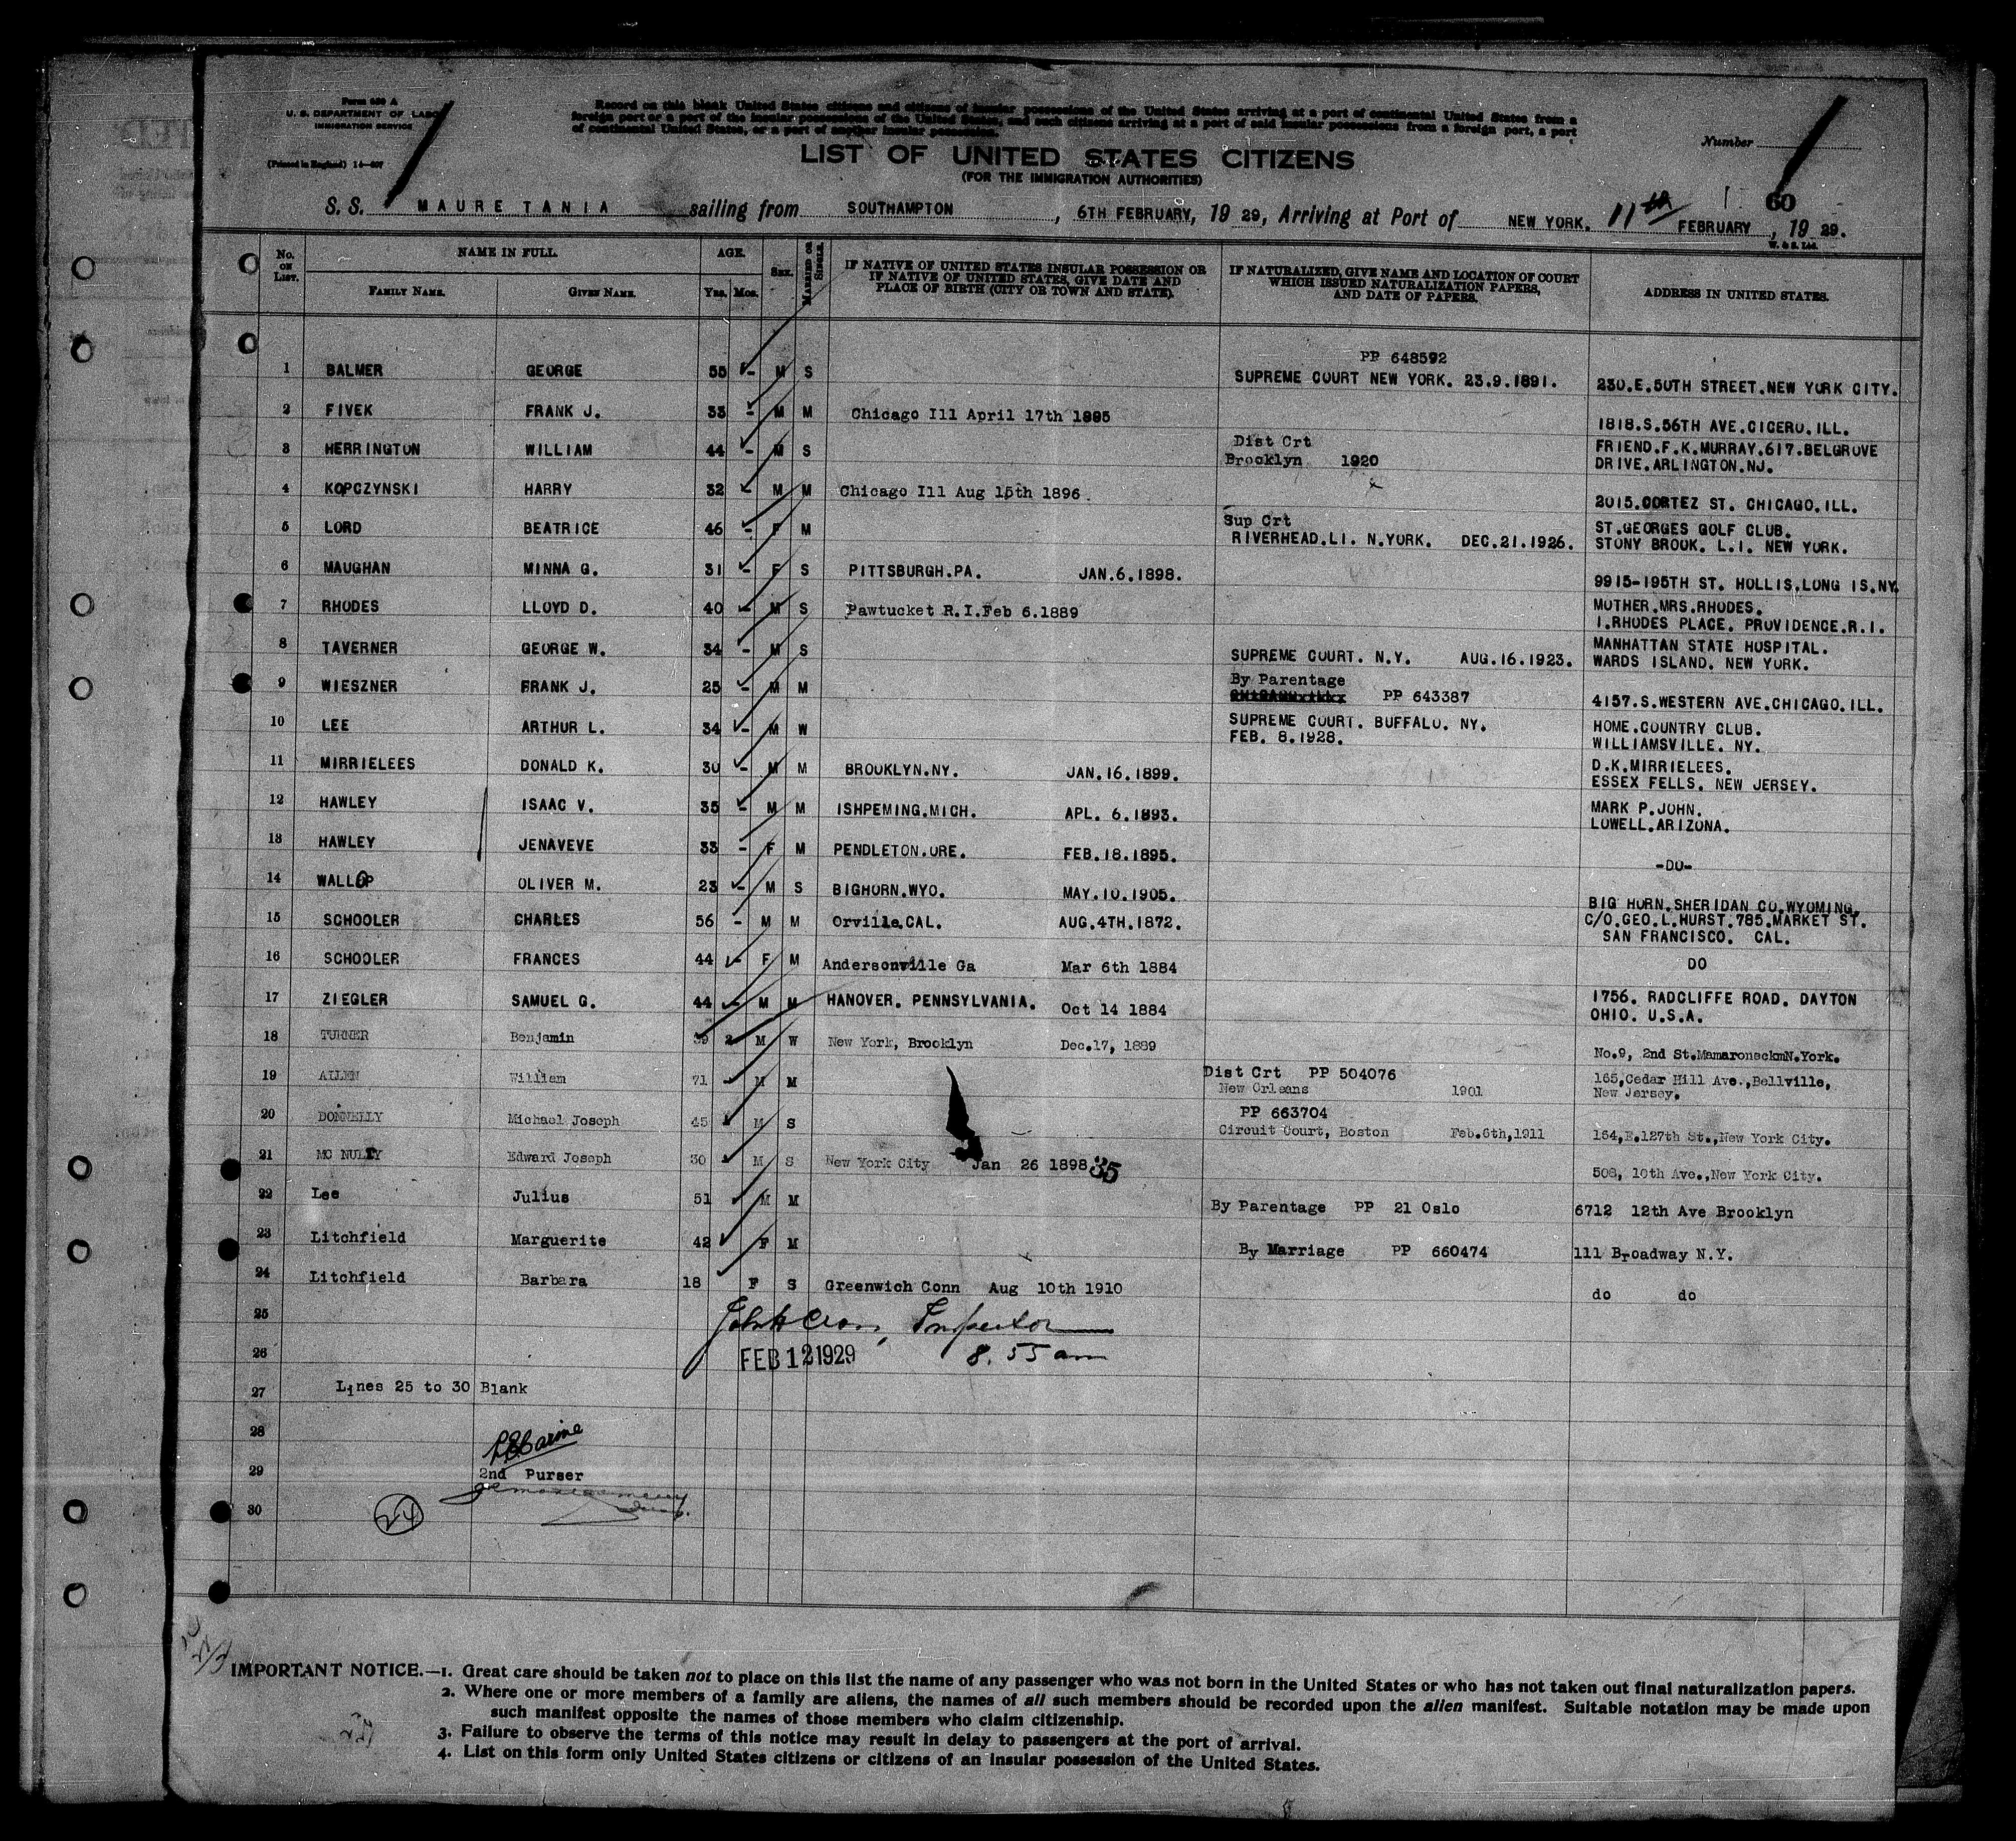 Form 630 A
U. S. DEPARTMENT OF LABOR
IMMIGRATION SERVICE
(Printed in England) 14—407
Record on this blank United States citizens and citizens of insular possessions of the United States arriving at a port of continental United States from a
foreign port or a part of the insular possessions of the United States, and such citizens arriving at a port of said insular possessions from a foreign port, a port
of continental United States, or a part of another insular possession.
Number
LIST OF UNITED STATES CITIZENS
(FOR THE IMMIGRATION AUTHORITIES)
60
S. S. MAURETANIA sailing from SOUTHAMPTON, 6TH FEBRUARY, 19 29, Arriving at Port of NEW YORK. 11th FEBRUARY, 19 29.
W. & S. Ltd.
No. ON LIST. NAME IN FULL. AGE. SEX. MARRIED OR SINGLE. IF NATIVE OF UNITED STATES INSULAR POSSESSION OR IF NATIVE OF UNITED STATES, GIVE DATE AND PLACE OF BIRTH (CITY OR TOWN AND STATE). IF NATURALIZED, GIVE NAME AND LOCATION OF COURT WHICH ISSUED NATURALIZATION PAPERS, AND DATE OF PAPERS. ADDRESS IN UNITED STATES.
FAMILY NAME. GIVEN NAME. Yrs. Mos.
1 BALMER GEORGE 55 - M S PP 648592 SUPREME COURT NEW YORK. 23.9.1891. 230.E.50TH STREET.NEW YORK CITY.
2 FIVEK FRANK J. 33 - M M Chicago Ill April 17th 1895 1818.S.56TH AVE.CICERO.ILL.
3 HERRINGTON WILLIAM 44 - M S Dist Crt Brooklyn 1920 FRIEND.F.K.MURRAY.617.BELGROVE DRIVE.ARLINGTON.NJ.
4 KOPCZYNSKI HARRY 32 - M M Chicago Ill Aug 15th 1896 2015.CORTEZ ST. CHICAGO.ILL.
5 LORD BEATRICE 46 - F M Sup Crt RIVERHEAD.LI. N.YORK. DEC.21.1926. ST.GEORGES GOLF CLUB. STONY BROOK. L.I. NEW YORK.
6 MAUGHAN MINNA G. 31 - F S PITTSBURGH.PA. JAN.6.1898. 9915-195TH ST. HOLLIS.LONG IS.NY.
7 RHODES LLOYD D. 40 - M S Pawtucket R.I.Feb 6.1889 MOTHER.MRS.RHODES. 1.RHODES PLACE. PROVIDENCE.R.I.
8 TAVERNER GEORGE W. 34 - M S SUPREME COURT. N.Y. AUG.16.1923. MANHATTAN STATE HOSPITAL. WARDS ISLAND. NEW YORK.
9 WIESZNER FRANK J. 25 - M M By Parentage PP 643387 4157.S.WESTERN AVE.CHICAGO.ILL.
10 LEE ARTHUR L. 34 - M W SUPREME COURT. BUFFALO. NY. FEB. 8.1928. HOME.COUNTRY CLUB. WILLIAMSVILLE. NY.
11 MIRRIELEES DONALD K. 30 - M M BROOKLYN.NY. JAN.16.1899. D.K.MIRRIELEES. ESSEX FELLS. NEW JERSEY.
12 HAWLEY ISAAC V. 35 - M M ISHPEMING.MICH. APL. 6.1893. MARK P.JOHN. LOWELL.ARIZONA.
13 HAWLEY JENAVEVE 33 - F M PENDLETON.ORE. FEB.18.1895. -DO-
14 WALLOP OLIVER M. 23 - M S BIGHORN.WYO. MAY.10.1905. BIG HORN.SHERIDAN CO.WYOMING.
15 SCHOOLER CHARLES 56 - M M Orville.CAL. AUG.4TH.1872. C/O.GEO.L.HURST.785.MARKET ST. SAN FRANCISCO. CAL.
16 SCHOOLER FRANCES 44 - F M Andersonville Ga Mar 6th 1884 DO
17 ZIEGLER SAMUEL G. 44 - M M HANOVER. PENNSYLVANIA. Oct 14 1884 1756. RADCLIFFE ROAD. DAYTON OHIO. U.S.A.
18 TURNER Benjamin 39 2 M W New York, Brooklyn Dec.17, 1889 No.9, 2nd St.MamaroneckmN.York.
19 ALLEN William 71 M M Dist Crt PP 504076 New Orleans 1901 165,Cedar Hill Ave.,Bellville, New Jersey.
20 DONNELLY Michael Joseph 45 M S PP 663704 Circuit Court, Boston Feb.6th,1911 154,E.127th St.,New York City.
21 MC NULTY Edward Joseph 30 M S New York City Jan 26 1898 35 508, 10th Ave.,New York City.
22 Lee Julius 51 M M By Parentage PP 21 Oslo 6712 12th Ave Brooklyn
23 Litchfield Marguerite 42 F M By Marriage PP 660474 111 Broadway N.Y.
24 Litchfield Barbara 18 F S Greenwich Conn Aug 10th 1910 do do
25 Inspector
26 FEB 12 1929 8.55 am
27 Lines 25 to 30 Blank
28
29 2nd Purser
30 24
IMPORTANT NOTICE.—1. Great care should be taken not to place on this list the name of any passenger who was not born in the United States or who has not taken out final naturalization papers.
2. Where one or more members of a family are aliens, the names of all such members should be recorded upon the alien manifest. Suitable notation may be made upon
such manifest opposite the names of those members who claim citizenship.
3. Failure to observe the terms of this notice may result in delay to passengers at the port of arrival.
4. List on this form only United States citizens or citizens of an insular possession of the United States.